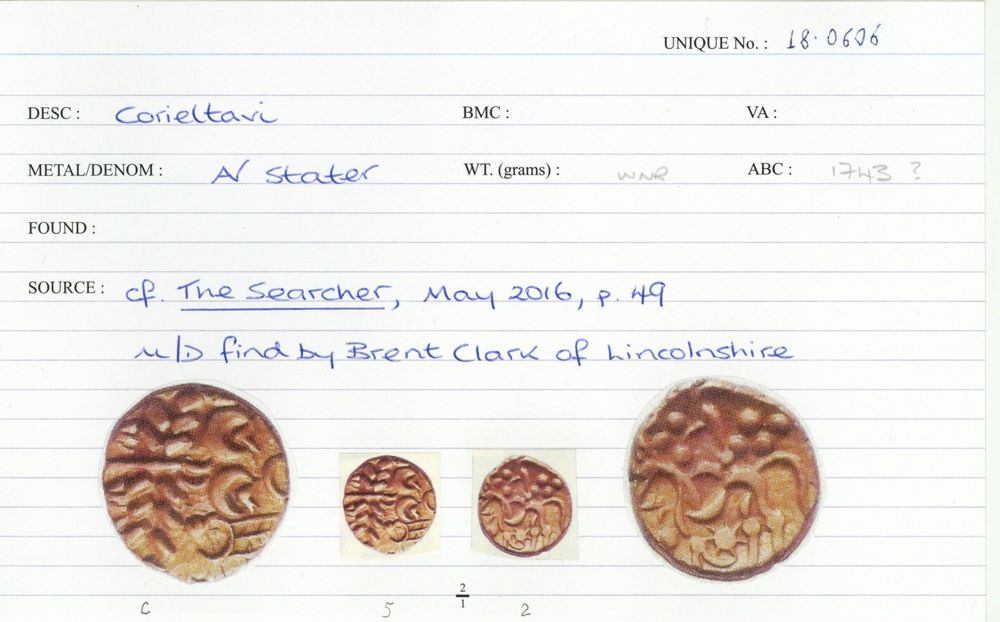 UNIQUE No. : 18.0606
DESC : Corieltavi BMC : VA :
METAL/DENOM : AV Stater WT. (grams) : WNR ABC : 1743 ?
FOUND :
SOURCE : cf. The Searcher, May 2016, p. 49
M/D find by Brent Clark of Lincolnshire
2
1
C 5 2